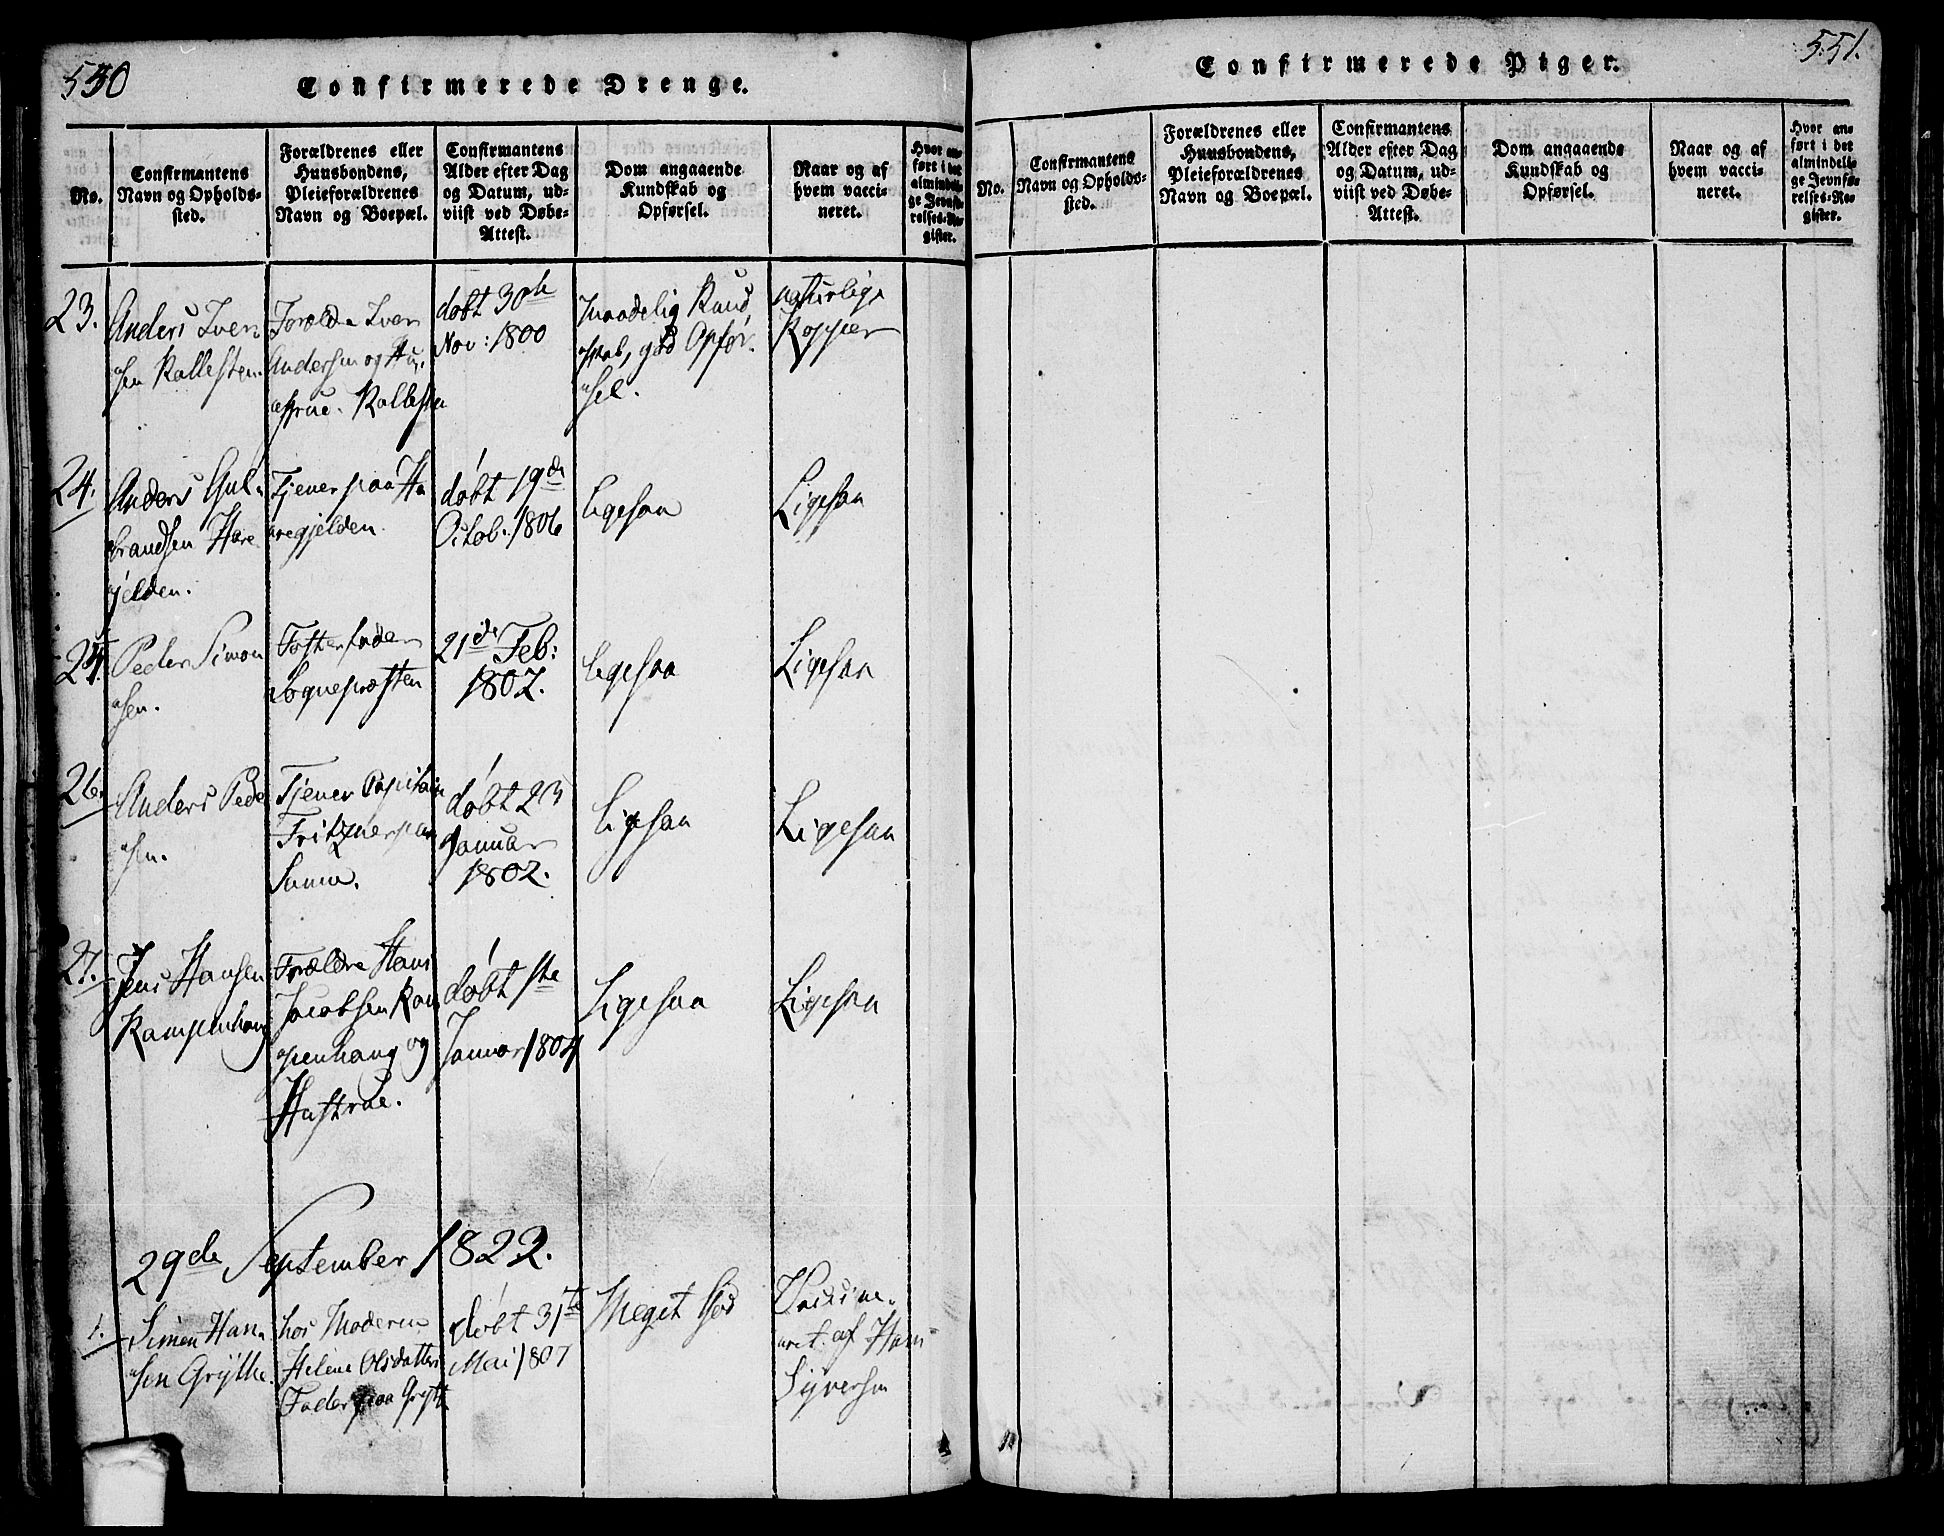 550
Confirmerede Drenge.
No.
Confirmantens
Navn og Opholds-
sted.
Forældrenes eller
Huusbondens,
Pleieforældrenes
Navn og Boepæl.
Confirmantens
Alder efter Dag
og Datum, ud-
viist ved Døbe-
Attest.
Dom angaaende
Kundskab og
Opførsel.
Naar og af
hvem vacci-
neret.
Hvor an-
ført i det
almindeli-
ge Jevnfø-
relses-Re-
gister.
23.
Anders Iver
sen Kallesten.
Forældre Iver
Andersen og Hu-
strue. Kallesten
døbt 30te
Nov: 1800
Maadelig Kund
skab, god Opfør-
sel.
naturlige
Kopper
24.
Anders Gul-
brandsen Hare
gjelden.
Tjener paa Ha
regjelden.
døbt 19de
Octob: 1806
ligesaa
Ligesaa
25.
Peder Simon
sen.
Fosterfader
Sognepræsten
21de Feb:
1807.
ligesaa
Ligesaa
26.
Anders Peder
sen.
Tjener Capitain
Fritzner paa
døbt 23
Januar
1802.
Ligesaa
Ligesaa
27.
Jens Hansen
Kampenhaug
Forældre Hans
Jacobsen Kam
penhaug og
Hustrue.
døbt 1ste
Januar 1804
Ligesaa
Ligesaa
29de September 1822.
1.
Simen Han-
sen Grytte.
hos Moderen
Helene Olsdatter
Fader paa Grytt
døbt 31te
Mai 1807
Meget God
Vaccine-
ret af Hans
Syversen
551.
Confirmerede Piger.
No.
Confirmantens
Navn og Opholds-
sted.
Forældrenes eller
Huusbondens,
Pleieforældrenes
Navn og Boepæl.
Confirmantens
Alder efter Dag
og Datum, ud-
viist ved Døbe-
Attest.
Dom angaaende
Kundskab og
Opførsel.
Naar og af
hvem vacci-
neret.
Hvor an-
ført i det
almindeli-
ge Jevnfø-
relses-Re-
gister.